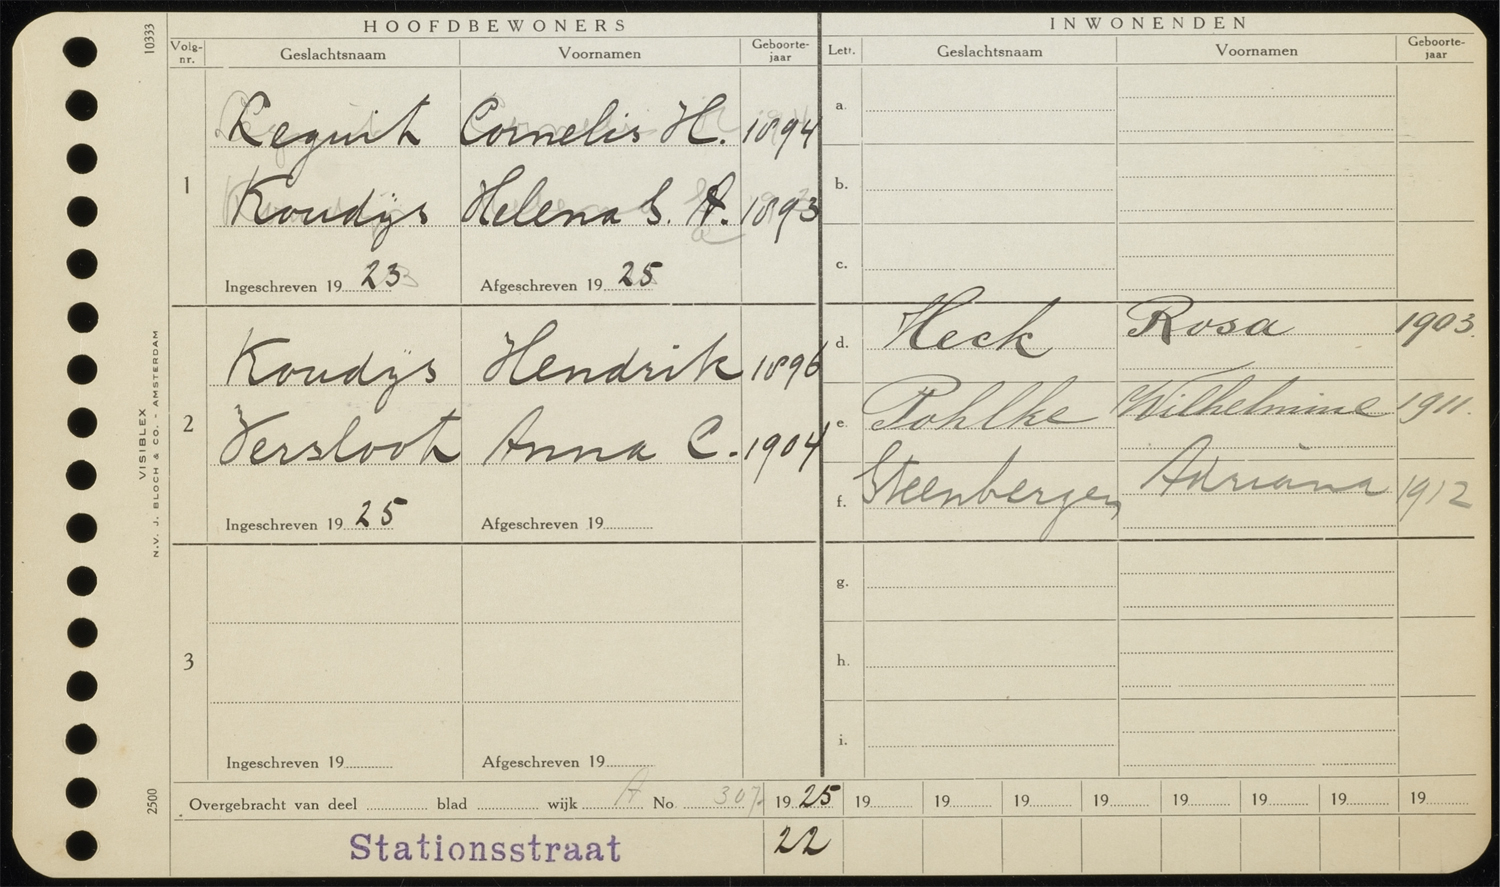 HOOFDBEWONERS
Volg-nr. Geslachtsnaam Voornamen Geboorte-jaar
1
Reguit Cornelis H. 1894
Koudijs Helena S. A. 1893
Ingeschreven 19 23 Afgeschreven 19 25
2
Koudijs Hendrik 1896
Versloot Anna C. 1904
Ingeschreven 19 25 Afgeschreven 19
3
Ingeschreven 19 Afgeschreven 19
INWONENDEN
Lett. Geslachtsnaam Voornamen Geboorte-jaar
a.
b.
c.
d. Heck Rosa 1903.
e. Pohlke Wilhelmine 1911.
f. Steenbergen Adriana 1912
g.
h.
i.
Overgebracht van deel blad wijk A No. 307. 19 25 19 19 19 19 19 19 19 19
Stationsstraat 22
10333
VISIBLEX
N.V. J. BLOCH & CO. - AMSTERDAM
2500